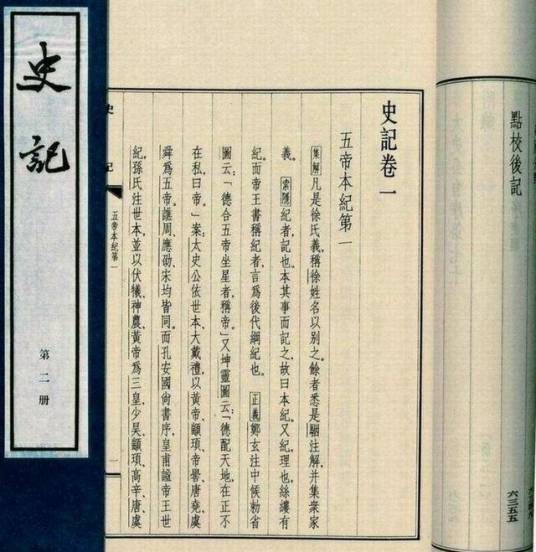 史記
第二册
史記卷一
五帝本紀第一
集解凡是徐氏義，稱徐姓名以別之。餘者悉是駰注解，并集衆家
義。索隱紀者，記也。本其事而記之，故曰本紀。又紀，理也，絲縷有
紀。而帝王書稱紀者，言爲後代綱紀也。正義鄭玄注中候敕省
圖云：「德合五帝坐星者，稱帝。」又坤靈圖云：「德配天地，在正不
在私，曰帝。」案：太史公依世本、大戴禮，以黃帝、顓頊、帝嚳、唐堯、虞
舜爲五帝。譙周、應劭、宋均皆同。而孔安國尚書序，皇甫謐帝王世
紀，孫氏注世本，並以伏犧、神農、黃帝爲三皇，少昊、顓頊、高辛、唐、虞
史記
五帝本紀第一
一
點校後記
六三五五